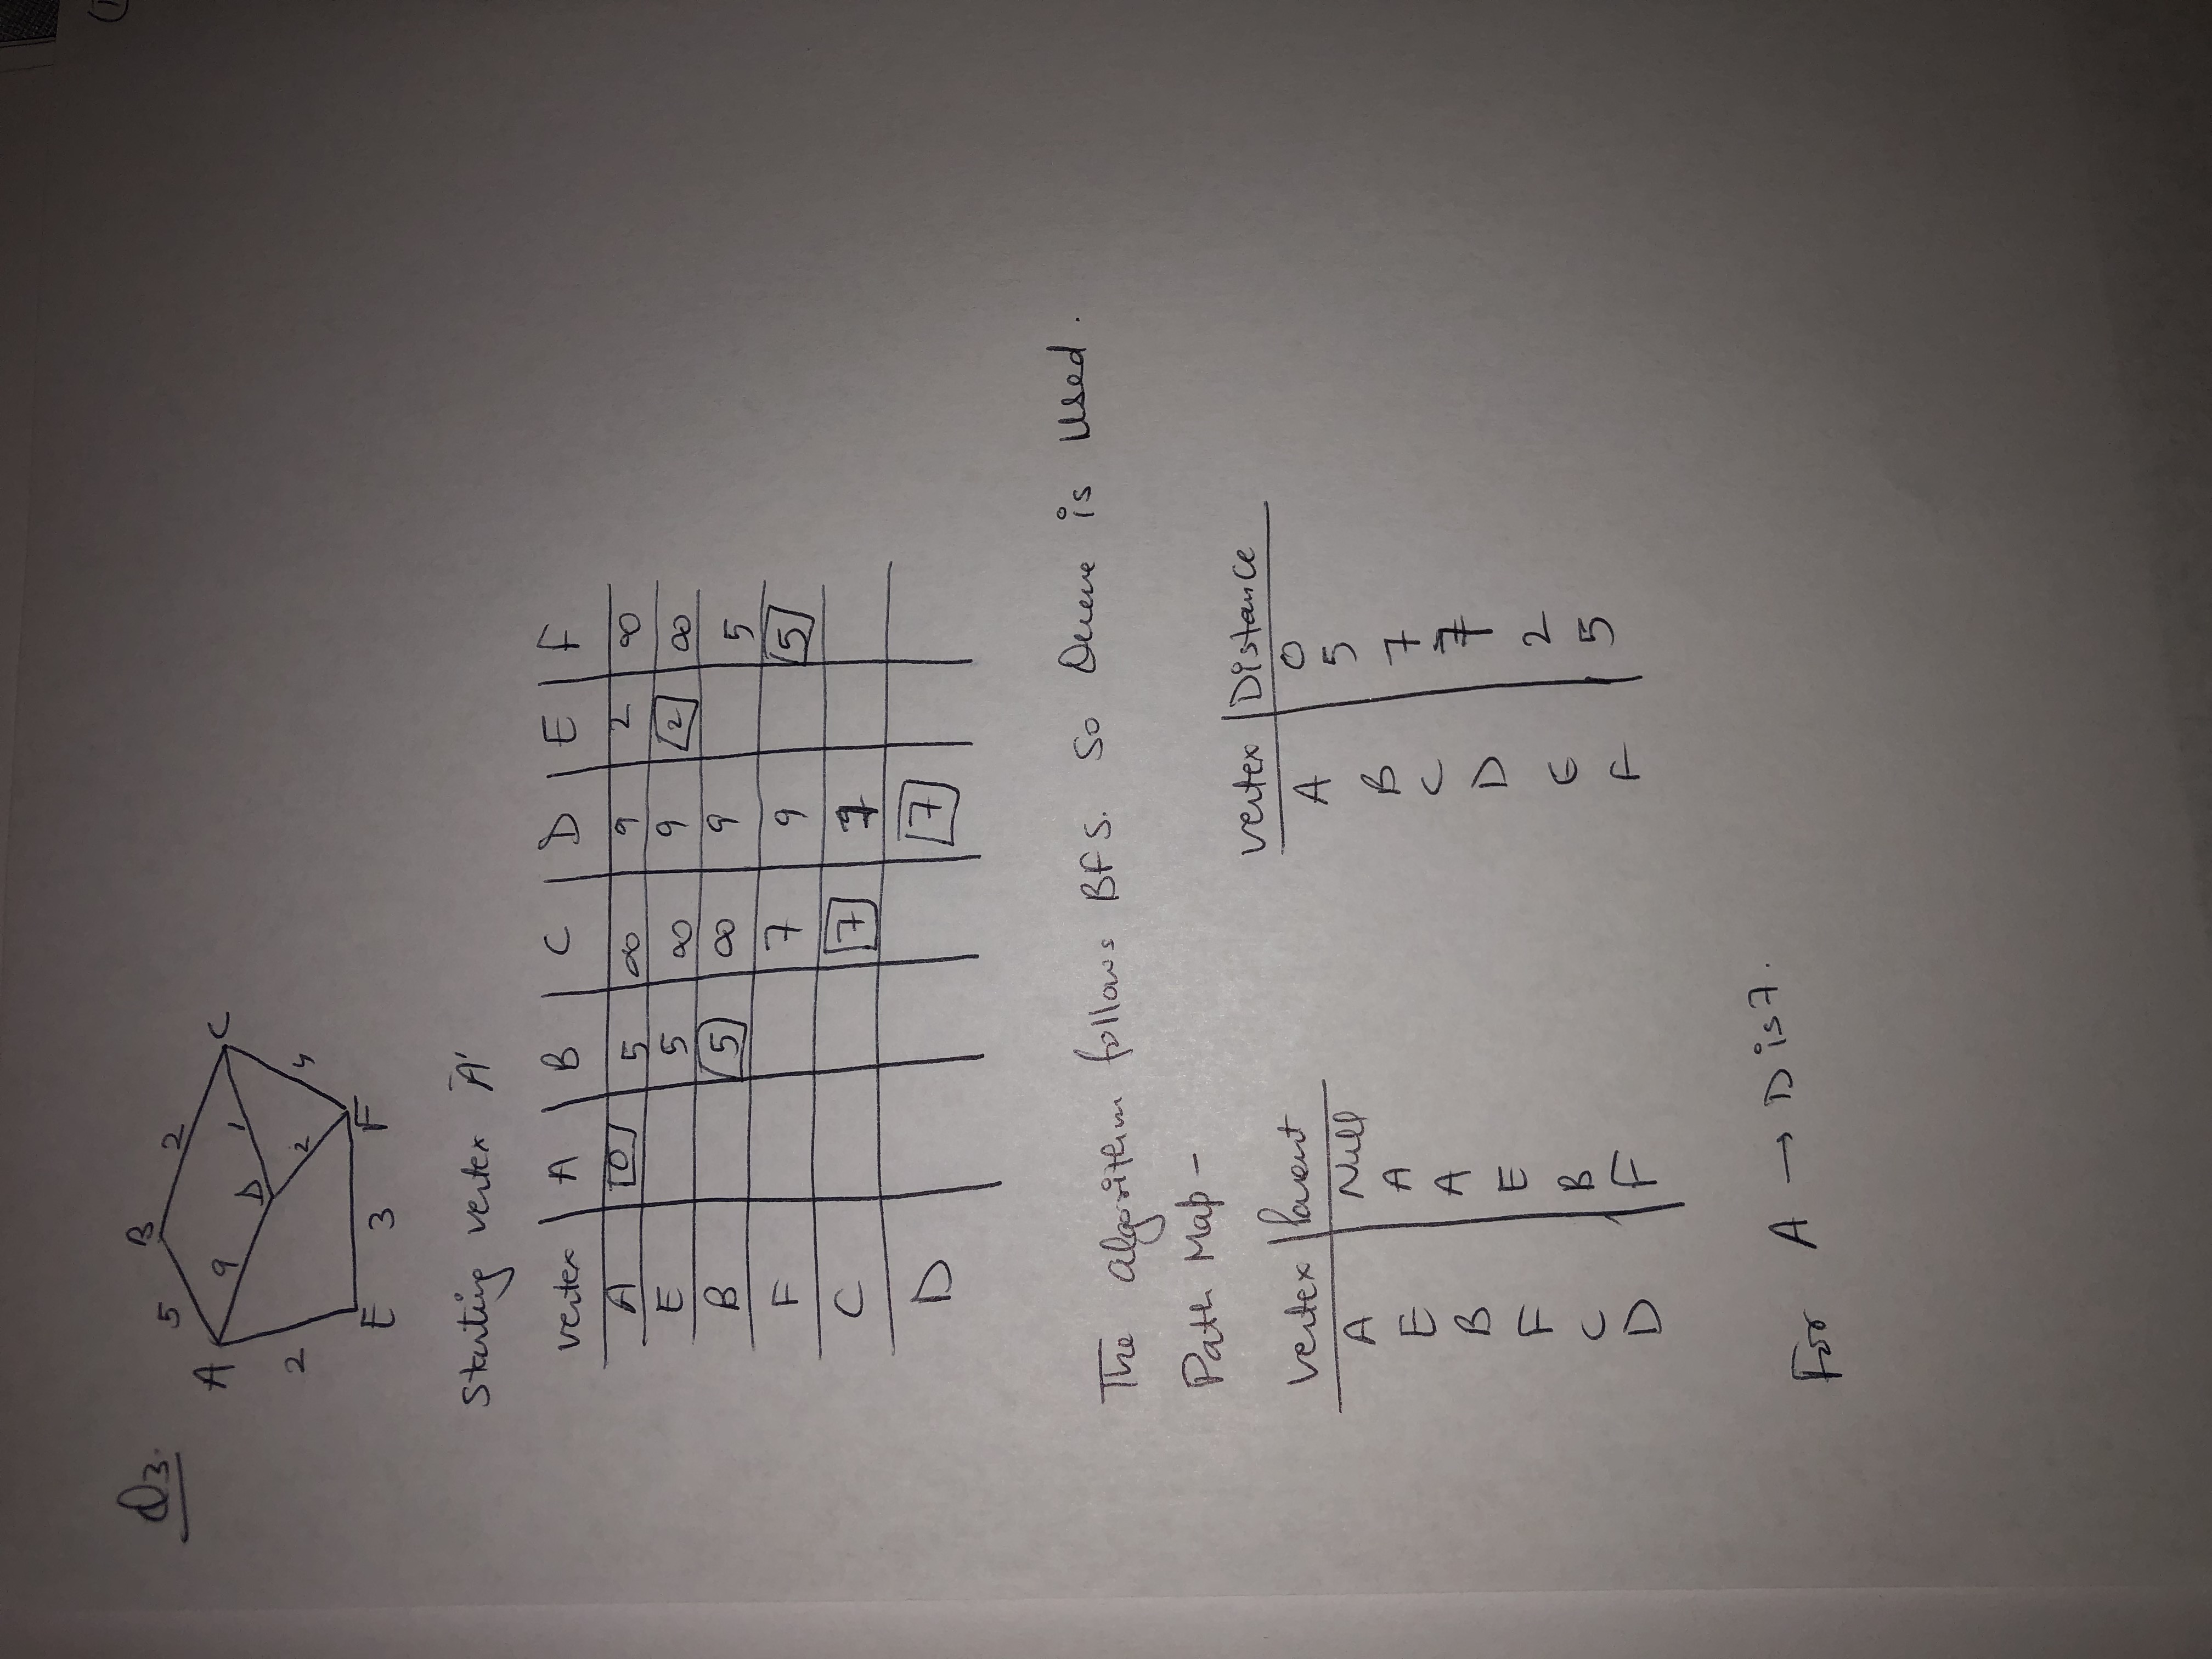 Q3.
B
5 2
A 9 C
D 1
2 2 4
E 3 F
Starting vertex 'A'
vertex A B C D E F
A 0 5 ∞ 9 2 ∞
E 5 ∞ 9 2 ∞
B 5 ∞ 9 5
F 7 9 5
C 7 7
D 7
The algorithm follows BFS. So Queue is Used.
Path Map -
vertex Parent
A Null
E A
B A
F E
C B
D F
vertex Distance
A 0
B 5
C 7
D 7
E 2
F 5
For A → D is 7.